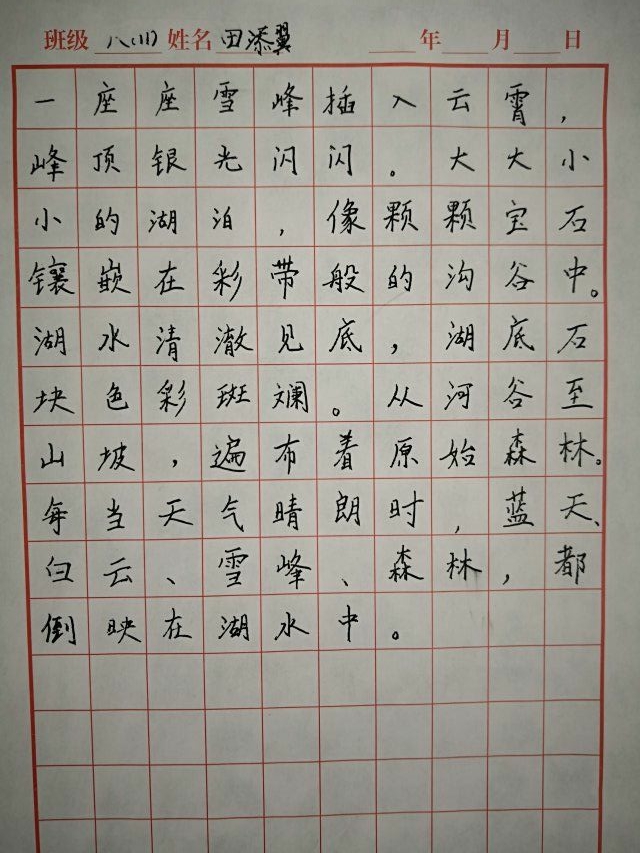 班级 八(11) 姓名 田添翼 年 月 日
一座座雪峰插入云霄，
峰顶银光闪闪。大大小
小的湖泊，像颗颗宝石
镶嵌在彩带般的沟谷中。
湖水清澈见底，湖底石
块色彩斑斓。从河谷至
山坡，遍布着原始森林。
每当天气晴朗时，蓝天、
白云、雪峰、森林，都
倒映在湖水中。